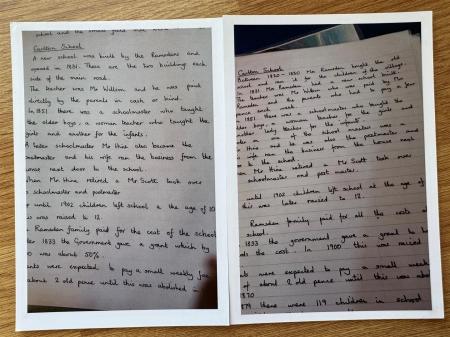 school and the
Carlton School
A new school was built by the Ramsdens and
opened in 1831. These are the two building each
side of the main road.
The teacher was Mr Willem and he was paid
directly by the parents in cash or kind.
In 1851 there was a schoolmaster who taught
the older boys, a woman teacher who taught the
girls and another for the infants.
A later schoolmaster Mr this also became the
postmaster and his wife ran the business from the
house next door to the school.
When Mr this retired a Mr Scott took over
schoolmaster and postmaster
until 1902 children left school a the age of 10
this was raised to 12.
Ramsden family paid for the cost of the school
1833 the Government gave a grant which by
was about 50%.
were expected to pay a small weekly fee
about 2 old pence until this was abolished in
Carlton School
Between 1820-1830 Mrs Ramsden bought the old
school and ran it for the children of the village
In 1831 Mrs Ramsden had a new school built.
The teacher was Mr Willem who was paid by Mrs
Ramsden and the parents who had to pay a few
pence
1851 there was a schoolmaster who taught the
older boys, a woman teacher for the girls and
another lady teacher for the infants.
one of the school masters was
this and he was also the postmaster and
his wife ran the business from the house next
to the school.
When Mr this retired a Mr Scott took over
schoolmaster and post master.
until 1902 children left school at the age of
this was later raised to 12.
Ramsden family paid for all the costs of
school.
1833 the government gave a grant to help
the cost. In 1900 this was raised
were expected to pay a small week
of about 2 old pence until this was
1870
there were 119 children in school